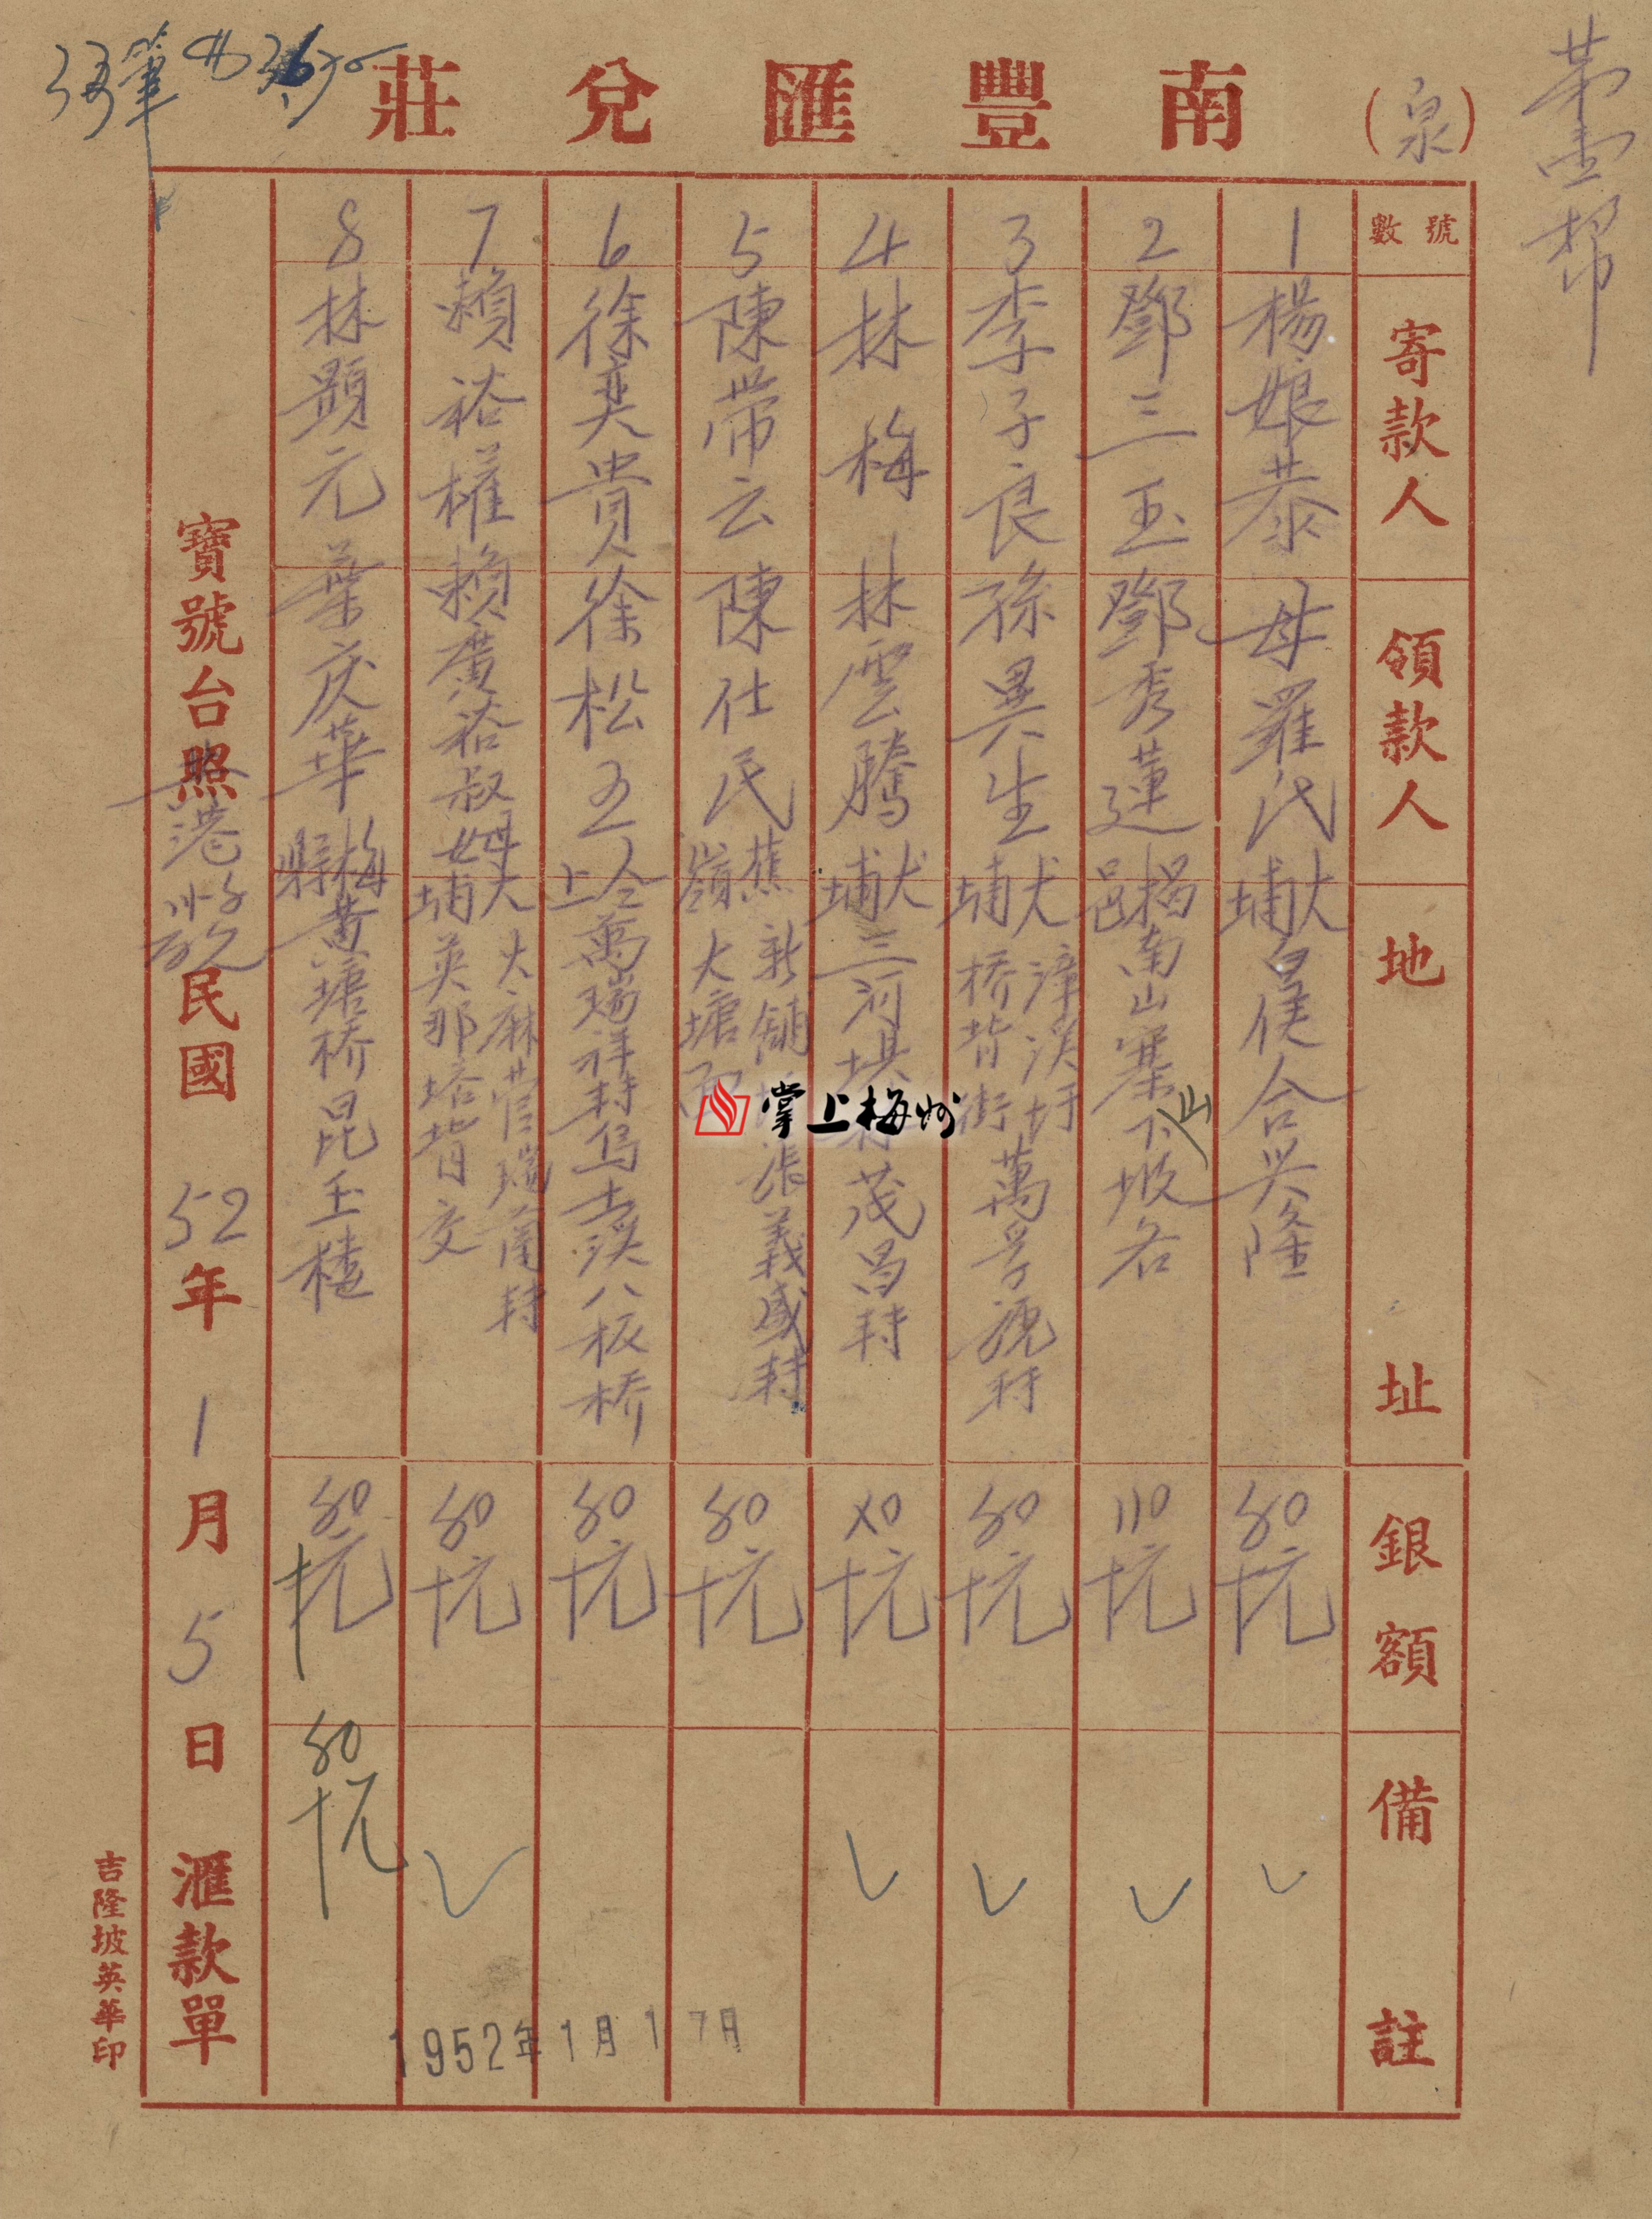 第壹帮
南豐匯兌莊
(泉)
號數 寄款人 領款人 地址 銀額 備註
1 楊娘恭 母羅氏 大埔 侯合兴隆 80元
2 鄧三玉 鄧秀蓮 揭邑 南山寨下坡 110元
3 李子良 孫異生 大埔 漳溪圩 桥背街 萬芳號 80元
4 林梅 林雲騰 大埔 三河垻 茂昌封 80元
5 陳帶云 陳仕氏 蕉嶺 新舖 張義盛封 大塘面 80元
6 徐奕貴 徐松五 上仝 萬瑞祥封 烏土溪八板桥 80元
7 賴裕權 賴廣裕叔 大埔 大麻 瑞蘭封 英那塔背交 80元
8 林顕元 葉庆華 梅縣 黄塘桥昆玉樓 80元
80元
寶號台照 民國 52 年 1 月 5 日 滙款單
港
吉隆坡英華印
1952年1月17日
掌上梅州